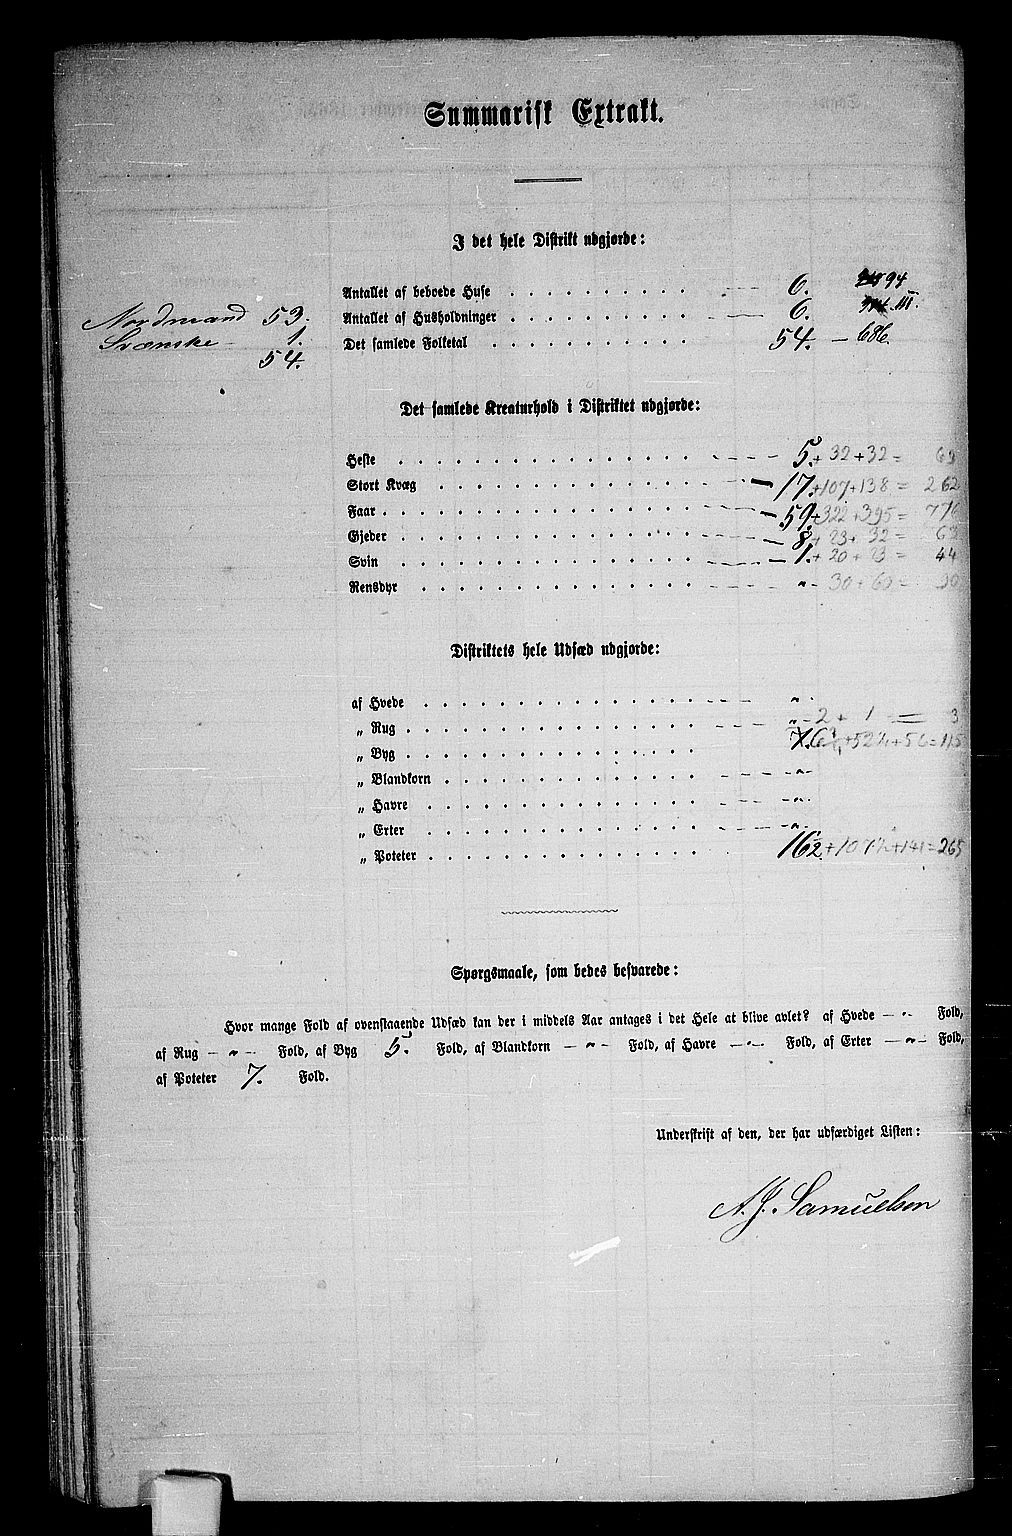 Summarisk Extrakt.
I det hele Distrikt udgjorde:
Antallet af beboede Huse 6. 94
Nordmænd 53.
Antallet af Husholdninger 6. 111.
Svænske 1.
Det samlede Folketal 54. — 686.
54.
Det samlede Kreaturhold i Distriktet udgjorde:
Heste 5. + 32 + 32 = 69
Stort Kvæg 17. + 107 + 138 = 262
Faar 59. + 322 + 395 = 776
Gjeder 8. + 23 + 32 = 63
Svin 1. + 20 + 23 = 44
Rensdyr „ 30 + 60 = 90
Distriktets hele Udsæd udgjorde:
af Hvede „
„ Rug „ 2 + 1 = 3
„ Byg + 56 = 115
„ Blandkorn „
„ Havre „
„ Erter „
„ Poteter 16½ + 107½ + 141 = 265
Spørgsmaale, som bedes besvarede:
Hvor mange Fold af ovenstaaende Udsæd kan der i middels Aar antages i det Hele at blive avlet? af Hvede — „ - Fold,
af Rug — „ — Fold, af Byg 5. Fold, af Blandkorn — „ — Fold, af Havre — „ — Fold, af Erter — „ — Fold,
af Poteter 7. Fold.
Underskrift af den, der har udfærdiget Listen:
A. J. Samuelson